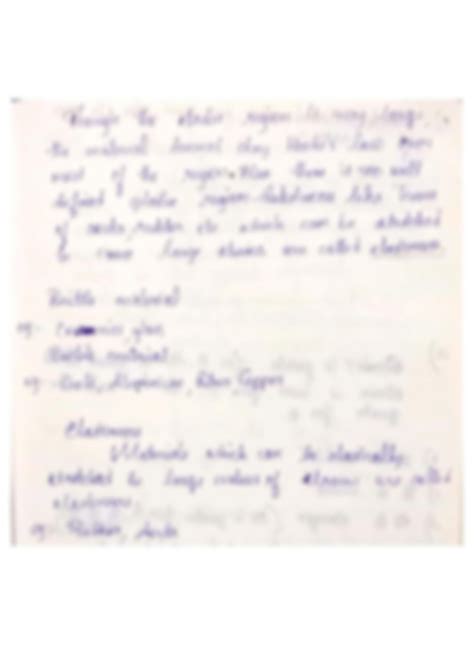 Though the elastic region is very large,
the material doesnot obey Hooke's law over
most of the region. Also there is no well
defined plastic region. Substances like tissue
of aorta, rubber etc which can be stretched
to cause large strains are called elastomers.
Brittle material
eg:- Ceramics, glass
Ductile material
eg:- Gold, Aluminium, Silver, Copper
Elastomers
Materials which can be elastically
stretched to large values of strain are called
elastomers.
eg:- Rubber, Aorta